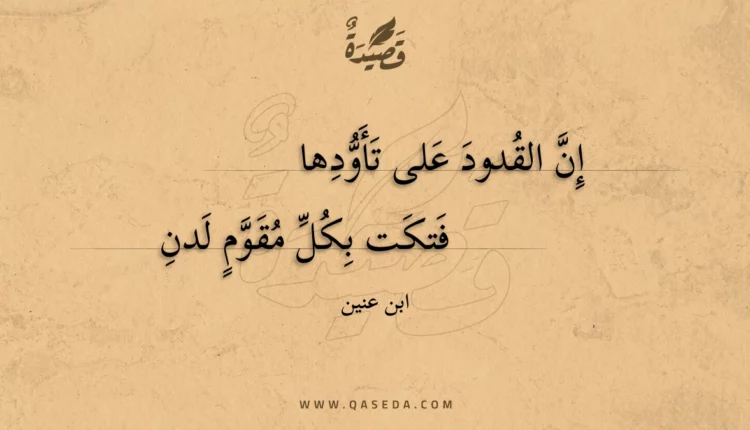 قَصِيْدَةٌ
إِنَّ القُدودَ عَلى تَأَوُّدِها
فَتَكَت بِكُلِّ مُقَوَّمٍ لَدنِ
ابن عنين
WWW.QASEDA.COM